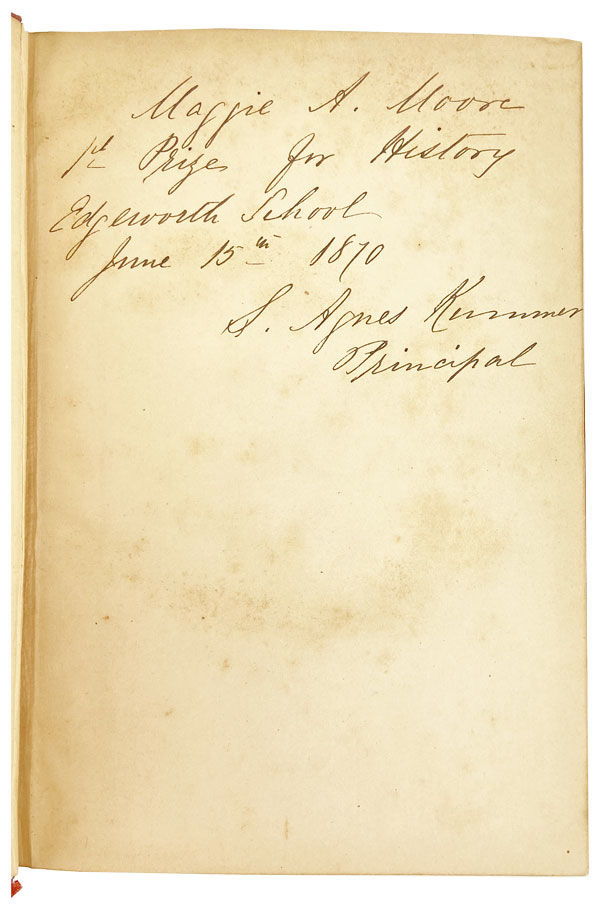 Maggie A. Moore
1st Prize for History
Edgeworth School
June 15th 1870
S. Agnes Kummer
Principal